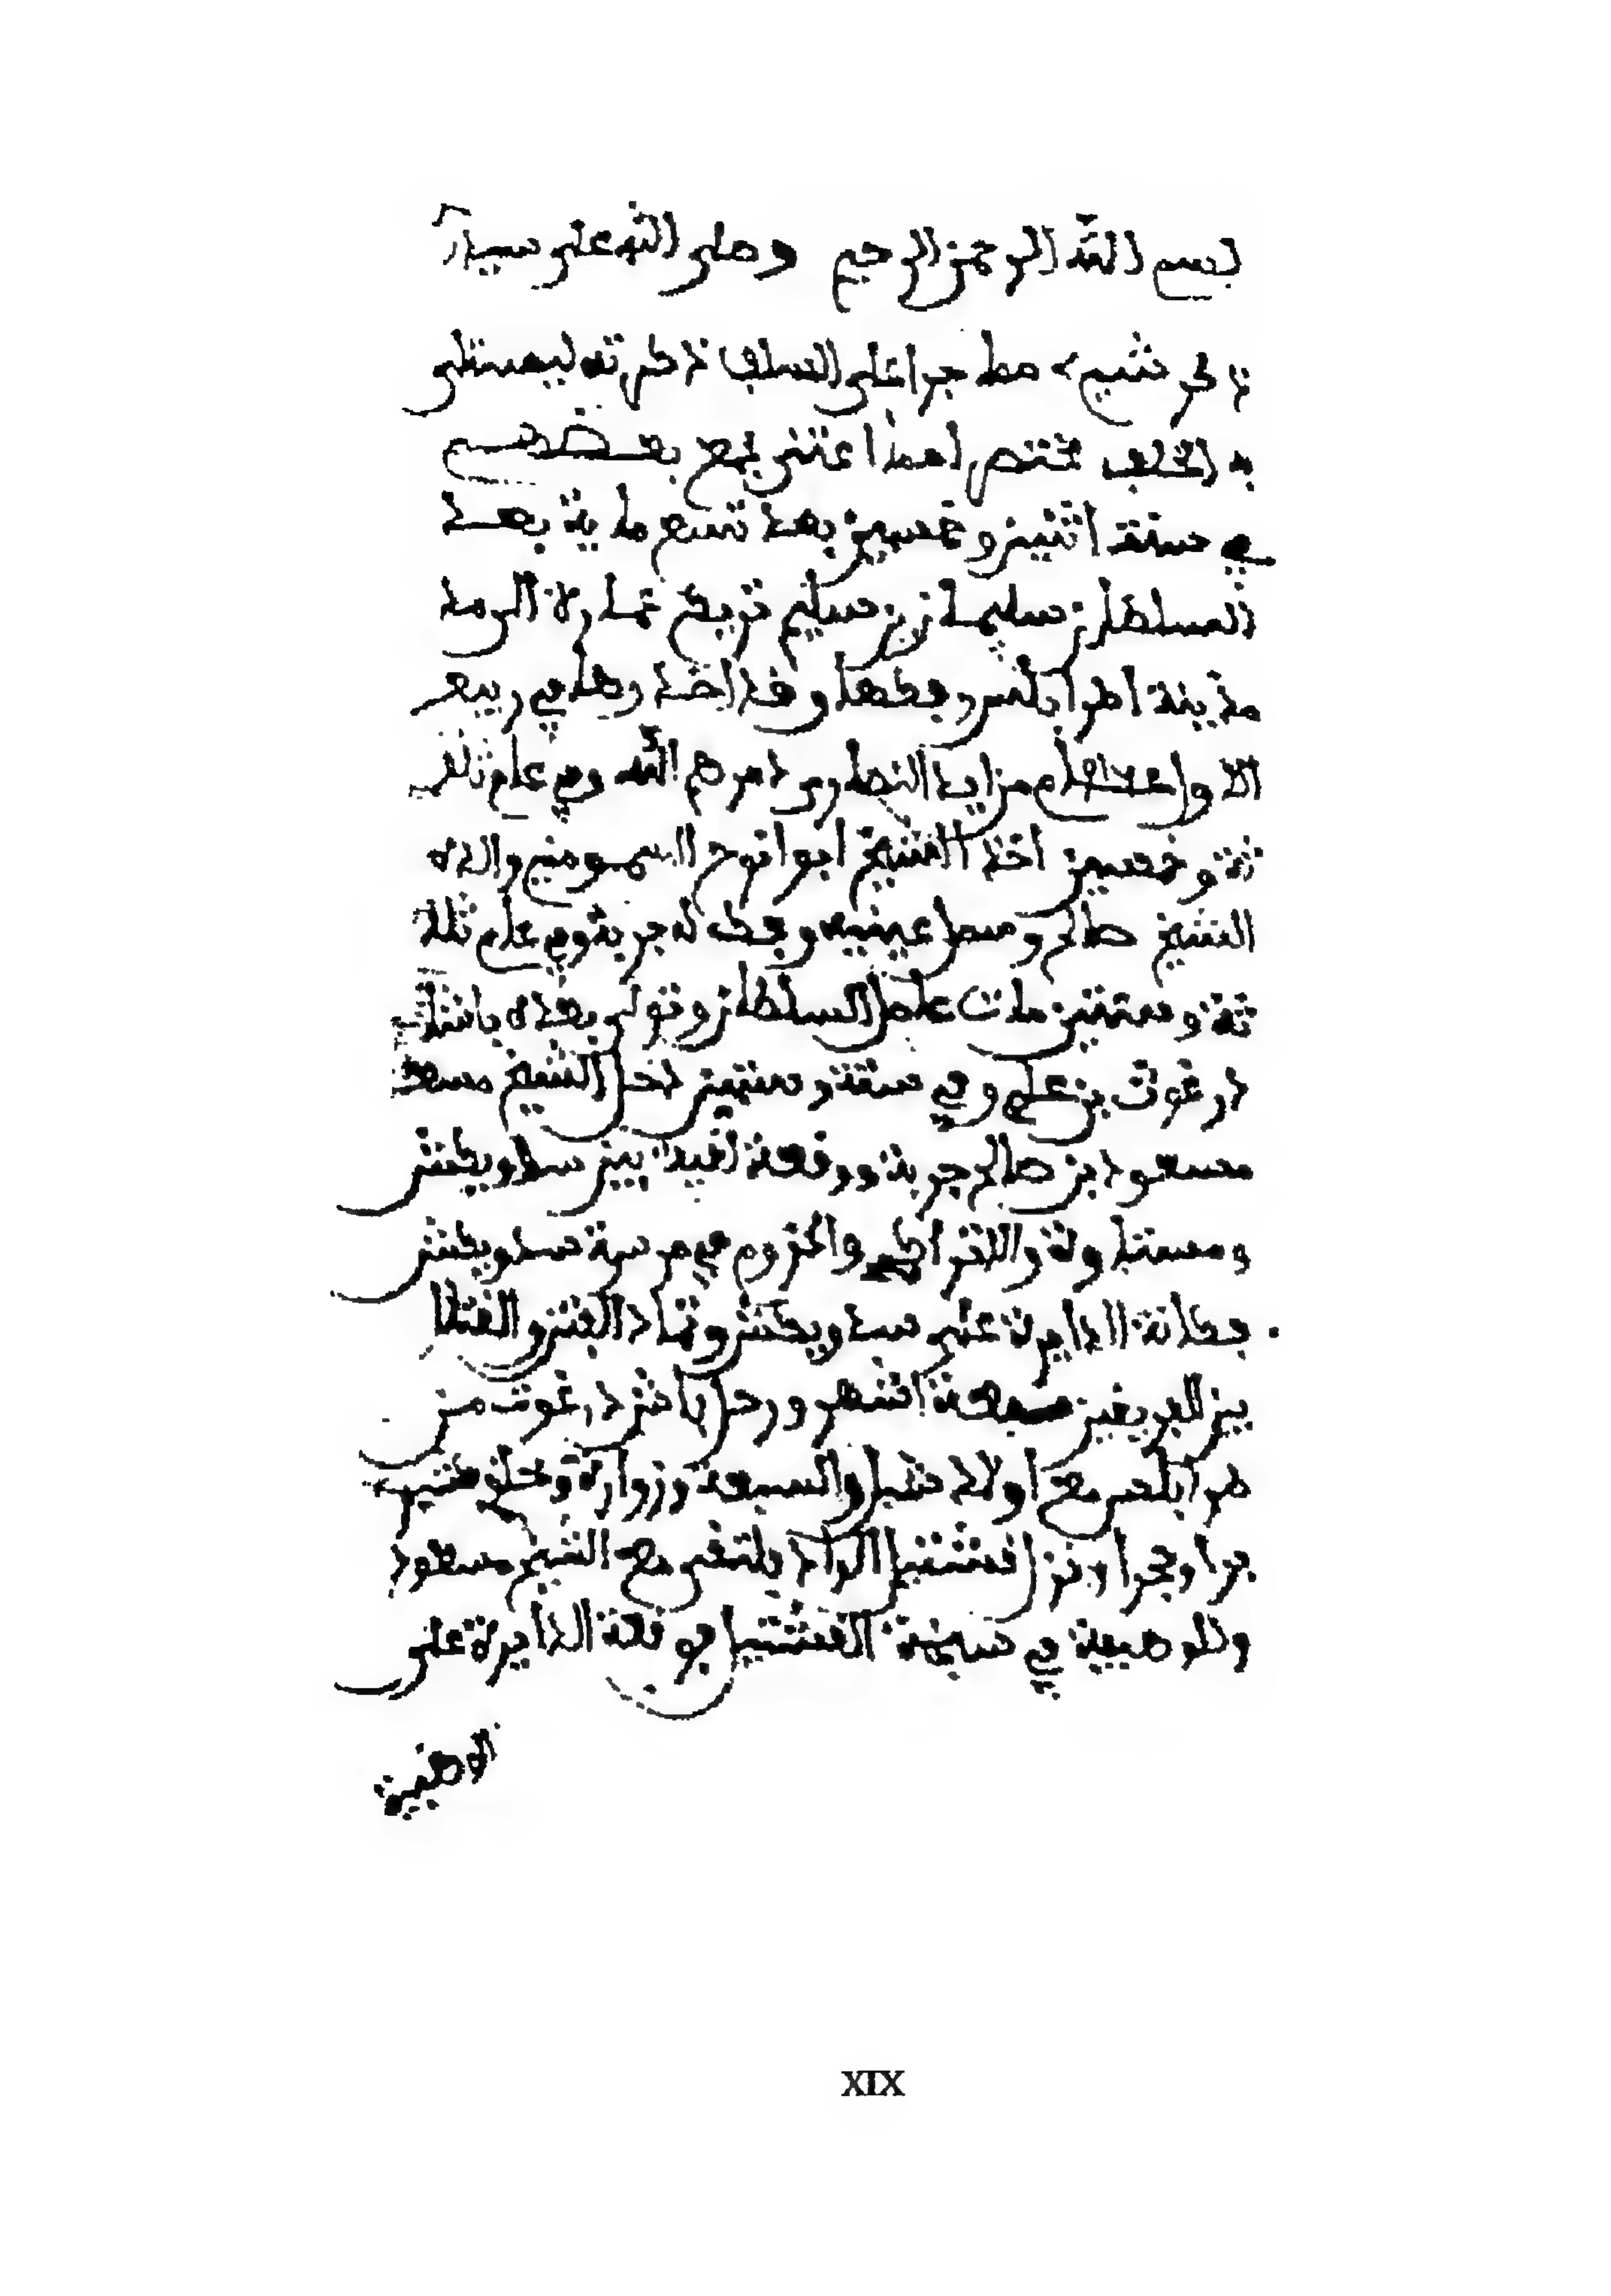 بسم الله الرحمن الرحيم وصلى الله على سيدنا
ذكر شيء مما جرا على السلف ذكرته ليتسلى
به الخلف مختصرا مما اعتنى بجمع بعضهم
في سنة اثنين وخمسين بعد تسع ماية بعث
السلطان سليمان بن سليم عمارة الى مد
مدينة اطرابلس وفكها وقد اخذوها في ربيع
الاول من ايد النصارى دمرهم الله وفي عام ثلا
ثة وخمسين اخذ الشيخ ابوا نوح السمومني والده
الشيخ صالح وسمل عينيه وفك له جربة وفي عام ثلا
ثة وستين مات عامل السلطان وتولى بعده باشا
درغوث بن علي وفي ستة وستين دخل الشيخ مسعو
مسعود بن صالح جربة ووقعة بين سدويكش
ومستاوة والحزوم في مرسة سدويكش
فكانة الدايرة على سدويكش وتماد الفتن والقتا
بين الفريقين سبعة اشهر ورحل باش درغوث من
طرابلس مع اولاد شبل والسبعة وزوارة وخلق كثير
برا وبحرا ونزل قشتيل الواد يلتقى مع الشيخ مسعود
والوهبية في سبخة القشتيل فوقعة الدايرة على
الوهبية
XIX